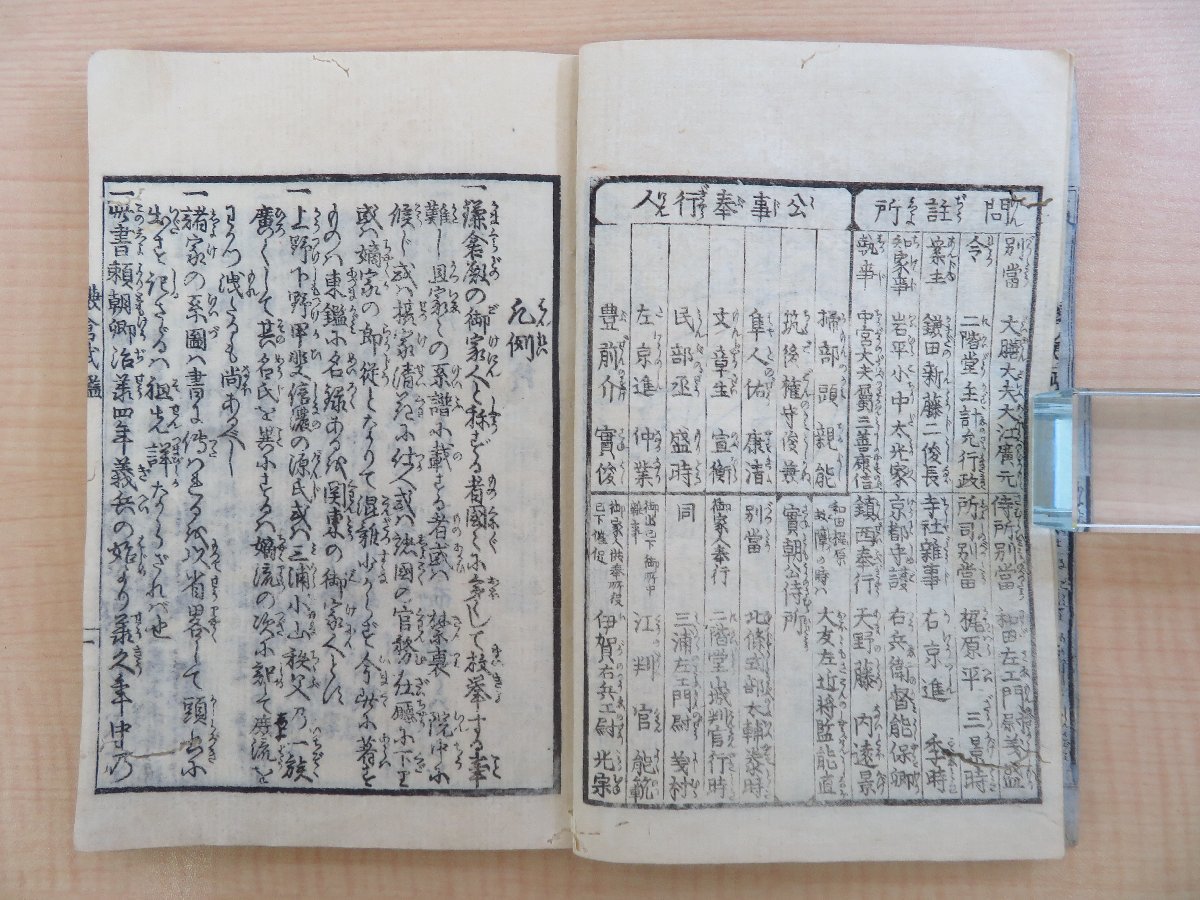 問註所
別當 大膳大夫大江廣元
令 二階堂主計允行政
案主 鎌田新藤二俊長
知家事 岩平小中太光家
執事 中宮大夫屬三善康信
公事奉行人
掃部頭親能
筑後權守俊兼
隼人佑 康清
文章生 宣衡
民部丞 盛時
左京進 仲業
豊前介 實俊
侍所別當 和田左エ門尉義盛
所司別當 梶原平三景時
寺社雜事 右京進 季時
京都守護 右兵衛督能保卿
鎮西奉行 天野藤内遠景
和田梶原故障の時ハ 大友左近将監能直
實朝公侍所
別當 北條式部大輔泰時
御家人奉行 二階堂城判官行時
同 三浦左エ門尉義村
御出已下御所中雜事 江判官能範
御家人供奉所役已下催促 伊賀右兵エ尉光宗
凡例
一 鎌倉殿の御家人と称ずる者國〻に
難し國家〻の系譜に載する者或ハ禁裏 院中に
候じ或ハ攝家清花に仕へ或ハ諸國の官務在廳に
或ハ嫡家の郎従となりて混雜少からず今此に著す
ものハ東鑑に名録ある代関東の御家人とす
一 上野下野甲斐信濃の源氏或ハ三浦小山秩父乃一族
廣くして其名氏を異にするハ嫡流の次に記て庶流を
わかつ洩たるも尚あるべし
一 諸家の系圖ハ書に
出さを記さゞるハ祖先詳なるざれバ也
一 此書頼朝卿治承四年義兵の始より承久年中乃